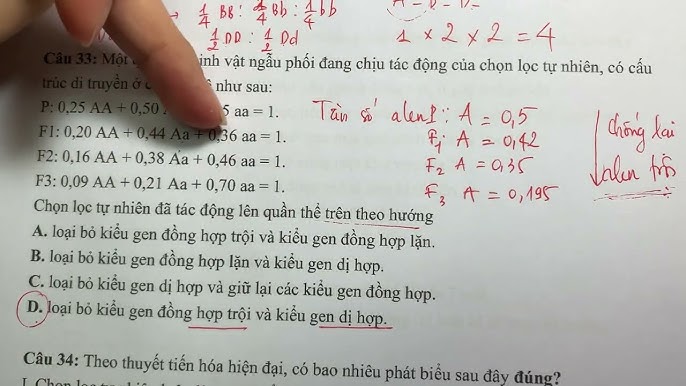 → 1/4 BB : 2/4 Bb : 1/4 bb
1/2 DD : 1/2 Dd
A - B - D -
1 × 2 × 2 = 4
Câu 33: Một sinh vật ngẫu phối đang chịu tác động của chọn lọc tự nhiên, có cấu
trúc di truyền ở như sau:
P: 0,25 AA + 0,50 aa = 1.
F1: 0,20 AA + 0,44 Aa + 0,36 aa = 1.
F2: 0,16 AA + 0,38 Aa + 0,46 aa = 1.
F3: 0,09 AA + 0,21 Aa + 0,70 aa = 1.
Tần số alen P: A = 0,5
F1: A = 0,42
F2 A = 0,35
F3 A = 0,195
Chống lại
alen trội
Chọn lọc tự nhiên đã tác động lên quần thể trên theo hướng
A. loại bỏ kiểu gen đồng hợp trội và kiểu gen đồng hợp lặn.
B. loại bỏ kiểu gen đồng hợp lặn và kiểu gen dị hợp.
C. loại bỏ kiểu gen dị hợp và giữ lại các kiểu gen đồng hợp.
D. loại bỏ kiểu gen đồng hợp trội và kiểu gen dị hợp.
Câu 34: Theo thuyết tiến hóa hiện đại, có bao nhiêu phát biểu sau đây đúng?